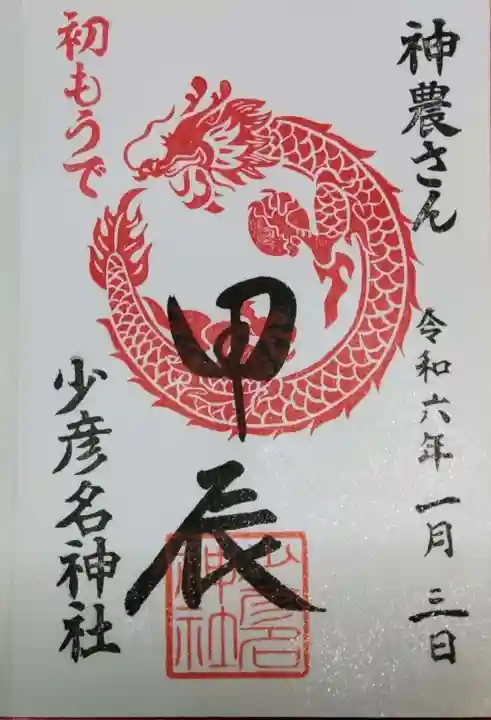 神農さん
令和六年 一月 三日
甲辰
初もうで
少彦名神社
少彦名
神社